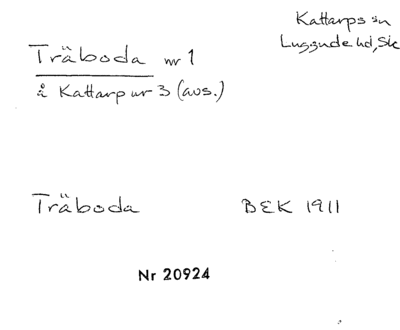 Kattarps sn
Luggude hd, Sk
Träboda nr 1
å Kattarp nr 3 (avs.)
Träboda BEK 1911
Nr 20924